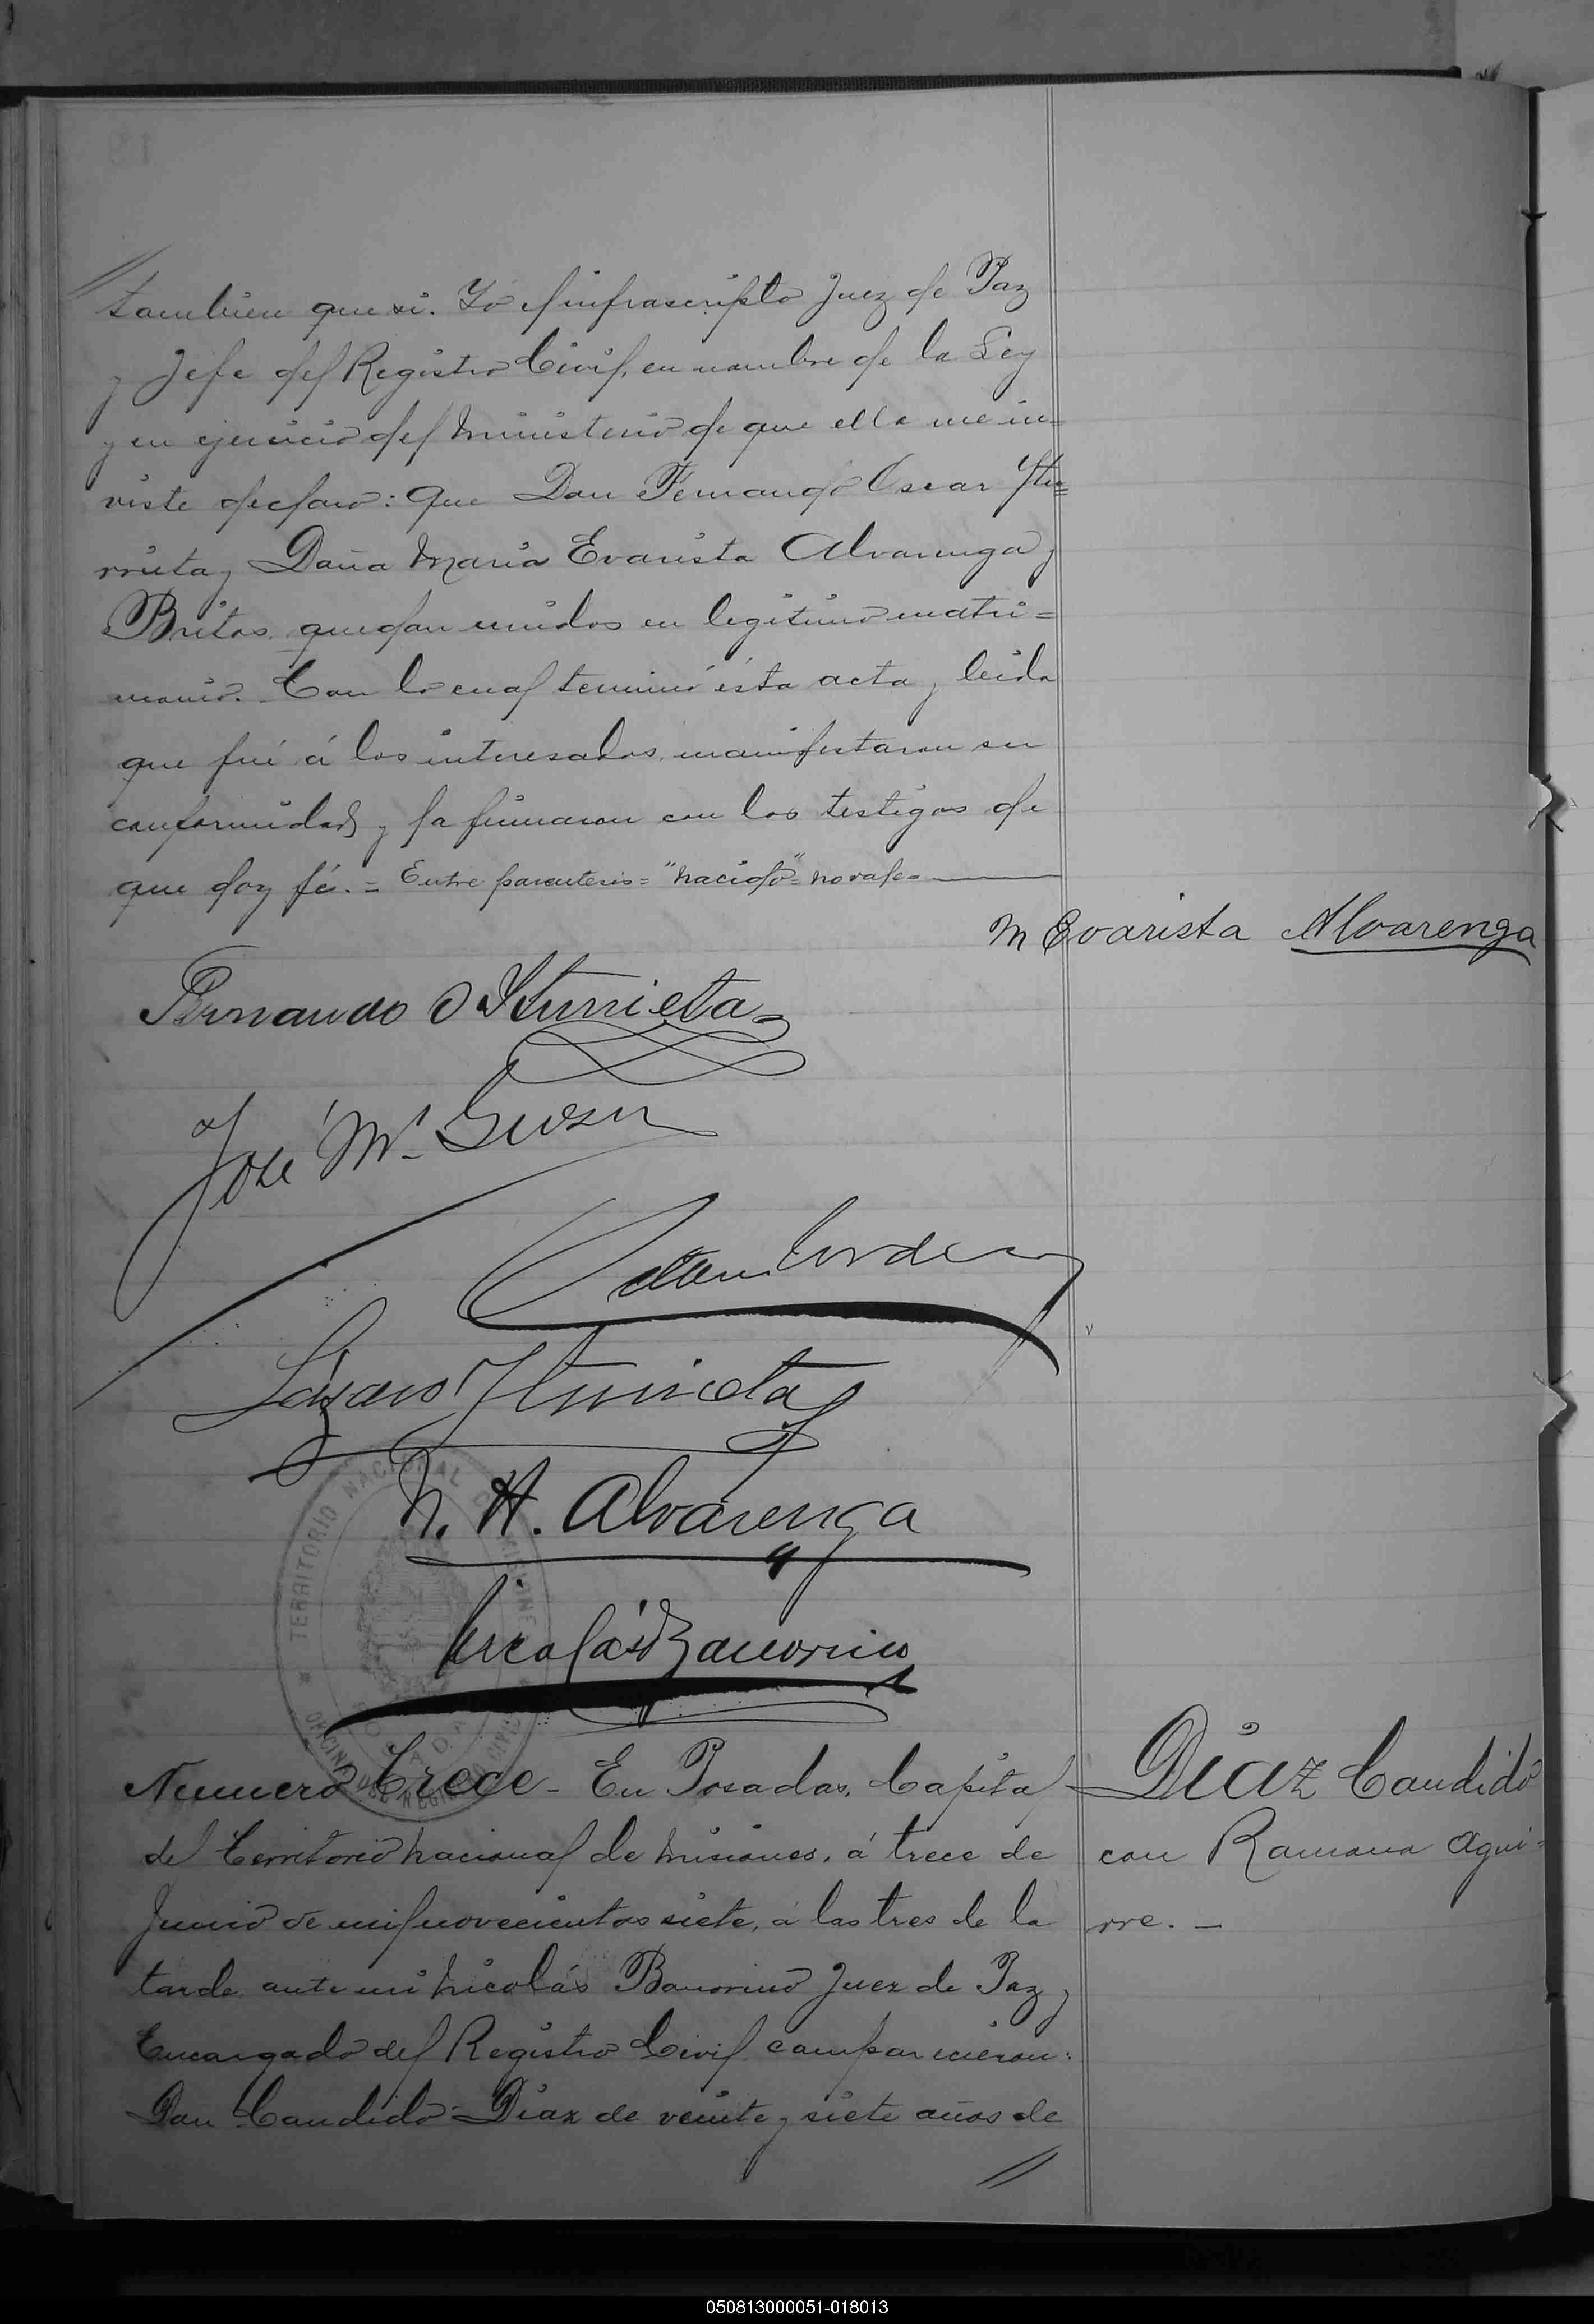 tambien que si. Yo el infrascripto Juez de Paz
y Jefe del Registro Civil, en nombre de la Ley
y en ejercicio del ministerio de que ella me in=
viste declaro: que Don Fernando Oscar Ytu=
rrieta y Doña Maria Evarista Alvarenga y
Britos quedan unidos en legitimo matri=
monio. Con lo cual terminó ésta acta y leida
que fué á los interesados, manifestaron su
conformidad y la firmaron con los testigos de
que doy fé. = Entre parentesis = "nacido" = no vale.
M Evarista Alvarenga
Fernando O Yturrieta
José M.
Lázaro Yturrieta
N. H. Alvarenga
Nicolás Bonorino
TERRITORIO NACIONAL DE MISIONES
OFICINA DEL REGISTRO CIVIL
POSADAS
Numero Trece - En Posadas, Capital
del Territorio nacional de Misiones, á trece de
Junio de mil novecientos siete, á las tres de la
tarde ante mi Nicolás Bonorino Juez de Paz y
Encargado del Registro Civil comparecieron:
Don Candido Diaz de veinte y siete años de
Diaz Candido
con Ramona Agui=
rre. -
050813000051-018013